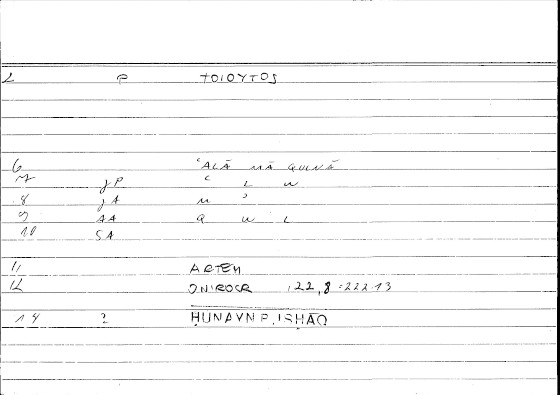 2 P TOIOYTOS
6 ʿALĀ MĀ QULNĀ
7 JP ʿ L W
8 JA M ʾ
9 AA Q W L
10 SA
11 ARTEM
12 ONIROCR 122,8=222.13
14 2 ḤUNAYN B. ISḤĀQ